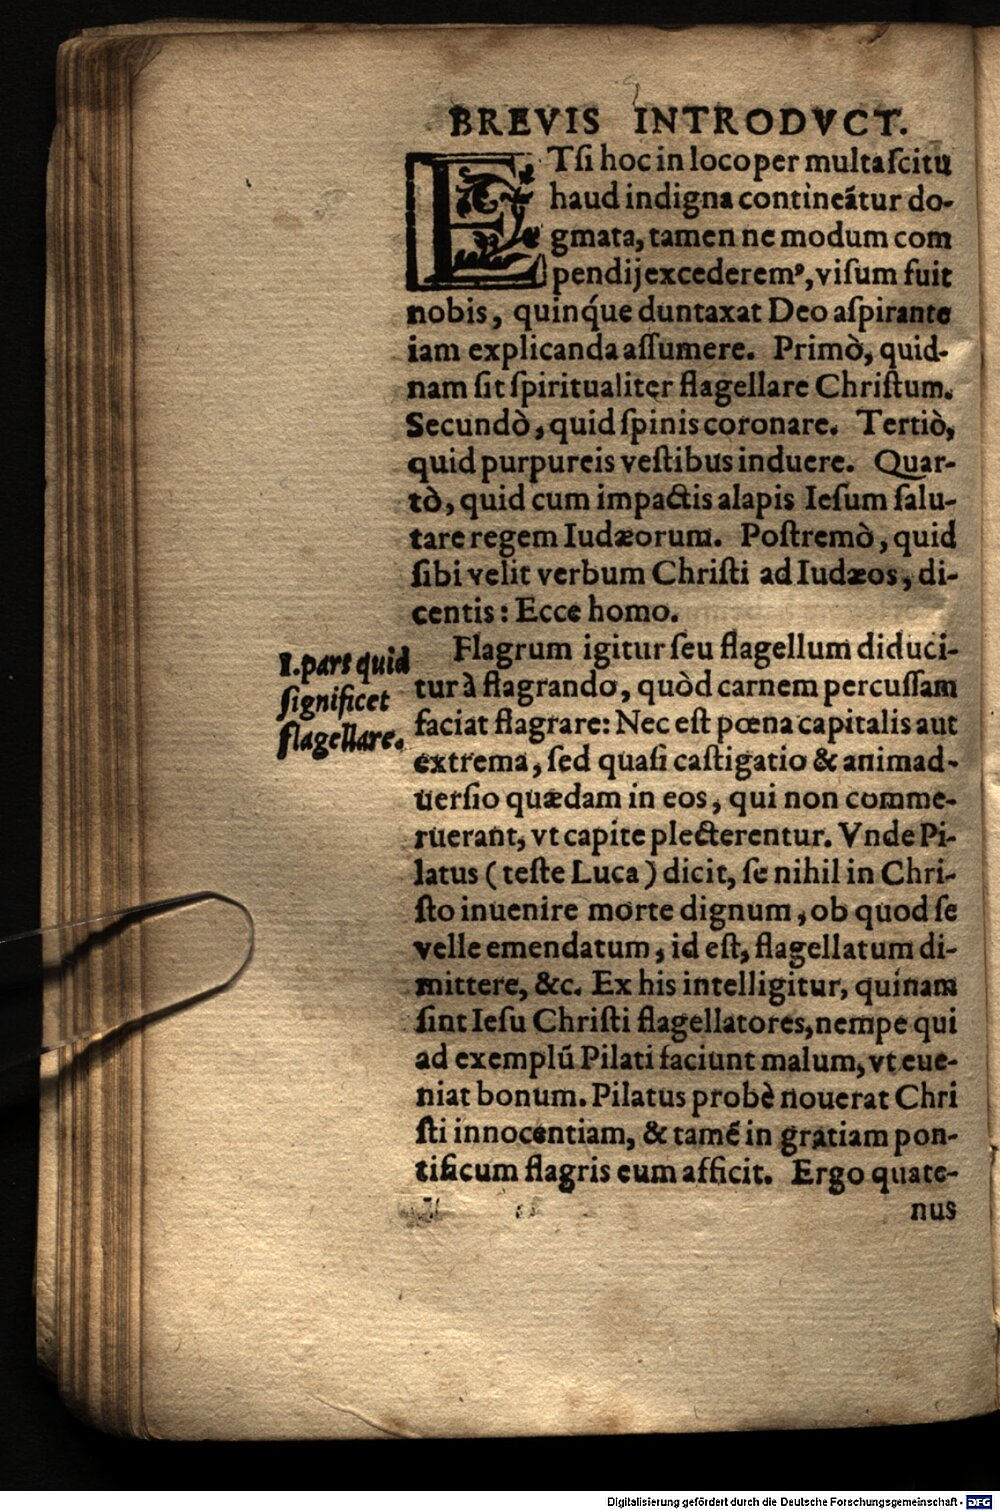 BREVIS INTRODVCT.
ETſi hoc in loco per multa ſcitu
haud indigna contineātur do-
gmata, tamen ne modum com
pendij excederemꝰ, viſum fuit
nobis, quinq́ue duntaxat Deo aſpirante
iam explicanda aſſumere. Primò, quid-
nam ſit ſpiritualiter flagellare Chriſtum.
Secundò, quid ſpinis coronare. Tertiò,
quid purpureis veſtibus induere. Quar-
tò, quid cum impactis alapis Ieſum ſalu-
tare regem Iudæorum. Poſtremò, quid
ſibi velit verbum Chriſti ad Iudæos, di-
centis: Ecce homo.
I. pars quid
ſignificet
flagellare.
Flagrum igitur ſeu flagellum diduci-
tur à flagrando, quòd carnem percuſſam
faciat flagrare: Nec eſt pœna capitalis aut
extrema, ſed quaſi caſtigatio & animad-
uerſio quædam in eos, qui non comme-
ruerant, vt capite plecterentur. Vnde Pi-
latus (teſte Luca) dicit, ſe nihil in Chri-
ſto inuenire morte dignum, ob quod ſe
velle emendatum, id eſt, flagellatum di-
mittere, &c. Ex his intelligitur, quinam
ſint Ieſu Chriſti flagellatores, nempe qui
ad exemplū Pilati faciunt malum, vt eue-
niat bonum. Pilatus probè nouerat Chri
ſti innocentiam, & tamē in gratiam pon-
tificum flagris eum afficit. Ergo quate-
nus
Digitalisierung gefördert durch die Deutsche Forschungsgemeinschaft - DFG